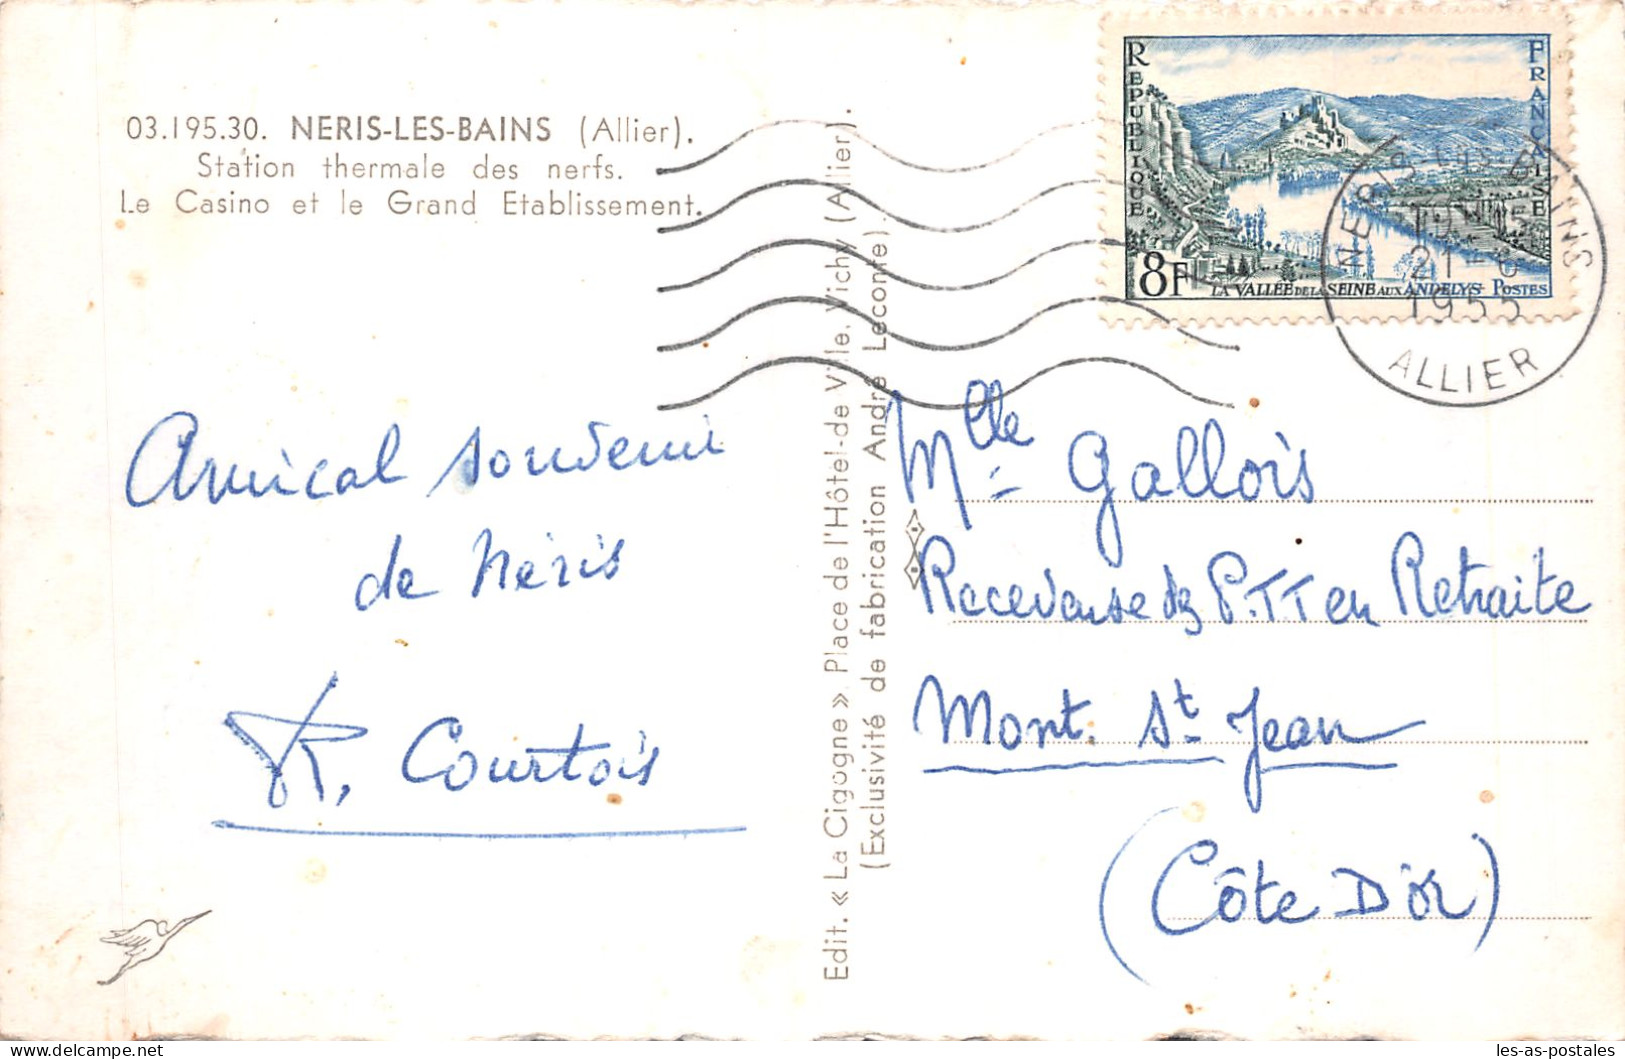 03.195.30. NERIS-LES-BAINS (Allier).
Station thermale des nerfs.
Le Casino et le Grand Etablissement.
Amical souvenir
de Néris
R. Courtois
Edit. « La Cigogne » Place de l'Hôtel-de-Ville, Vichy (Allier).
(Exclusivité de fabrication André Leconte)
REPUBLIQUE
FRANÇAISE
8F
LA VALLÉE DE LA SEINE AUX ANDELYS POSTES
NERIS-LES-BAINS
21 - 6
1955
ALLIER
Mlle Gallois
Receveuse des P.T.T en Retraite
Mont. St Jean
(Côte D'Or)
les-as-postales